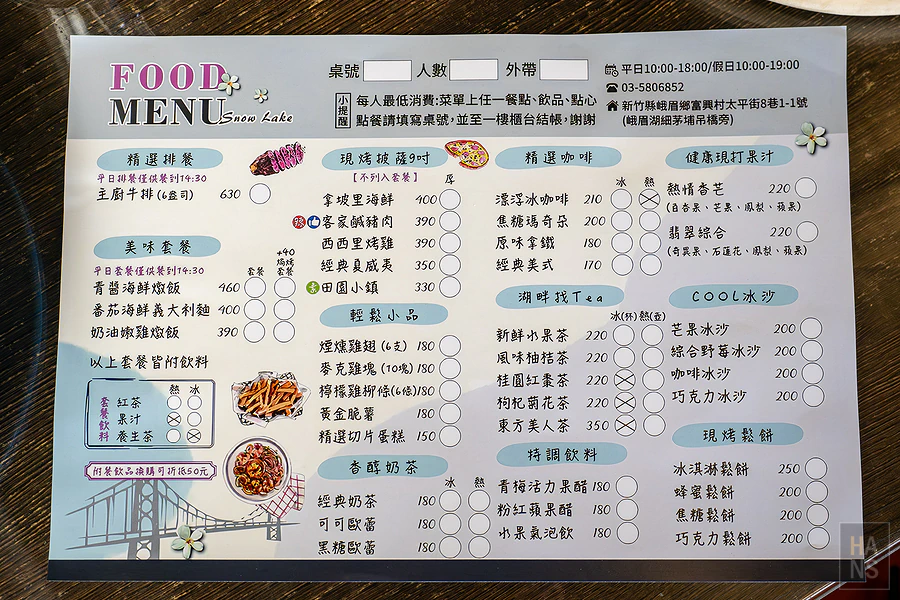 FOOD
MENU
Snow Lake
桌號 人數 外帶
小提醒
每人最低消費:菜單上任一餐點、飲品、點心
點餐請填寫桌號,並至一樓櫃台結帳,謝謝
平日10:00-18:00/假日10:00-19:00
03-5806852
新竹縣峨眉鄉富興村太平街8巷1-1號
(峨眉湖細茅埔吊橋旁)
精選排餐
平日排餐僅供餐到14:30
主廚牛排(6盎司) 630
美味套餐
平日套餐僅供餐到14:30
套餐
+40
焗烤
套餐
青醬海鮮燉飯 460
番茄海鮮義大利麵 400
奶油嫩雞燉飯 390
以上套餐皆附飲料
套餐飲料
熱 冰
紅茶
果汁
養生茶
附餐飲品換購可折抵50元
現烤披薩9吋
【不列入套餐】
厚
拿坡里海鮮 400
客家鹹豬肉 390
西西里烤雞 390
經典夏威夷 350
素 田園小鎮 330
輕鬆小品
煙燻雞翅(6支) 180
麥克雞塊(10塊) 180
檸檬雞柳條(6條) 180
黃金脆薯 180
精選切片蛋糕 150
香醇奶茶
冰 熱
經典奶茶 180
可可歐蕾 180
黑糖歐蕾 180
精選咖啡
冰 熱
漂浮冰咖啡 210
焦糖瑪奇朵 200
原味拿鐵 180
經典美式 170
湖畔找Tea
冰(杯) 熱(壺)
新鮮水果茶 220
風味柚桔茶 220
桂圓紅棗茶 220
枸杞菊花茶 220
東方美人茶 350
特調飲料
青梅活力果醋 180
粉紅蘋果醋 180
水果氣泡飲 180
健康現打果汁
熱情香芒 220
(百香果、芒果、鳳梨、蘋果)
翡翠綜合 220
(奇異果、石蓮花、鳳梨、蘋果)
COOL冰沙
芒果冰沙 200
綜合野莓冰沙 200
咖啡冰沙 200
巧克力冰沙 200
現烤鬆餅
冰淇淋鬆餅 250
蜂蜜鬆餅 200
焦糖鬆餅 200
巧克力鬆餅 200
HANS